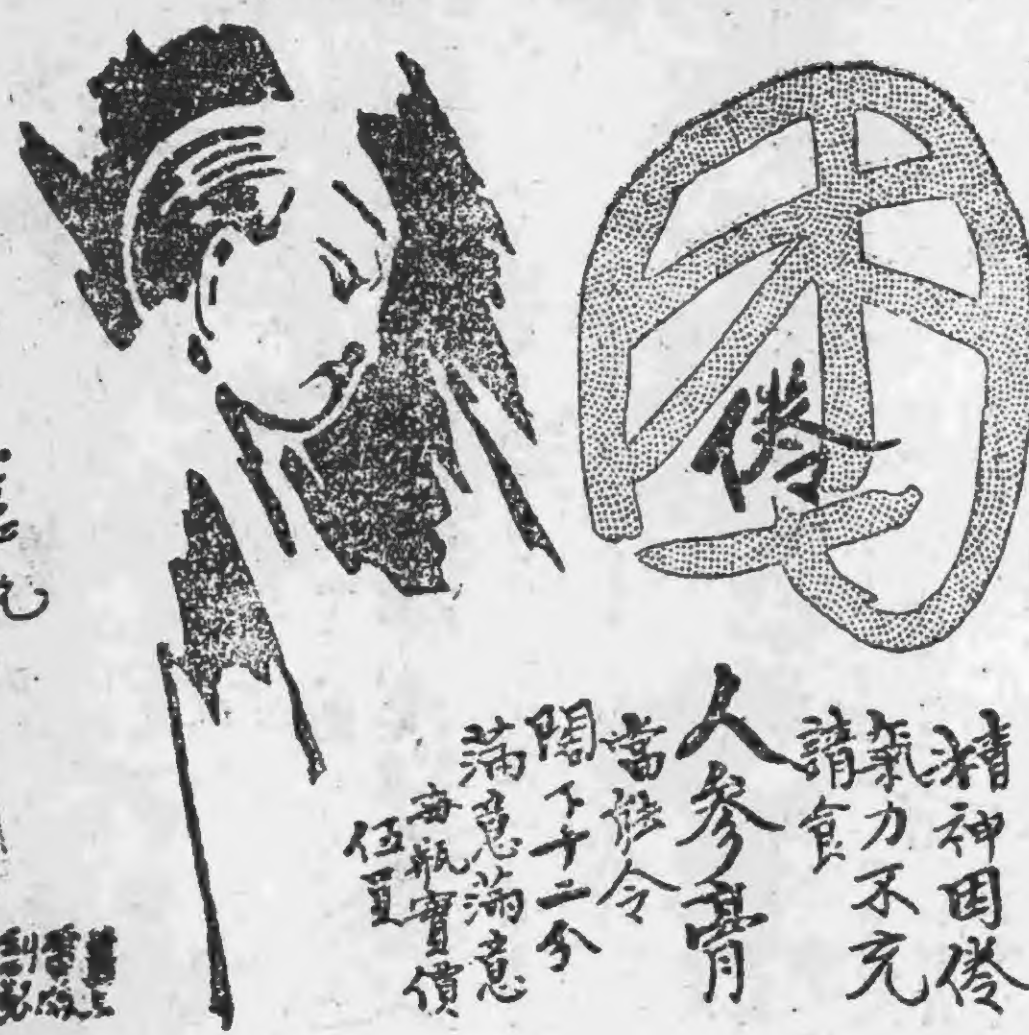 困倦
精神困倦
氣力不充
請食
人參膏
當能令
閣下十二分
滿意滿意
每瓶實價
伍員